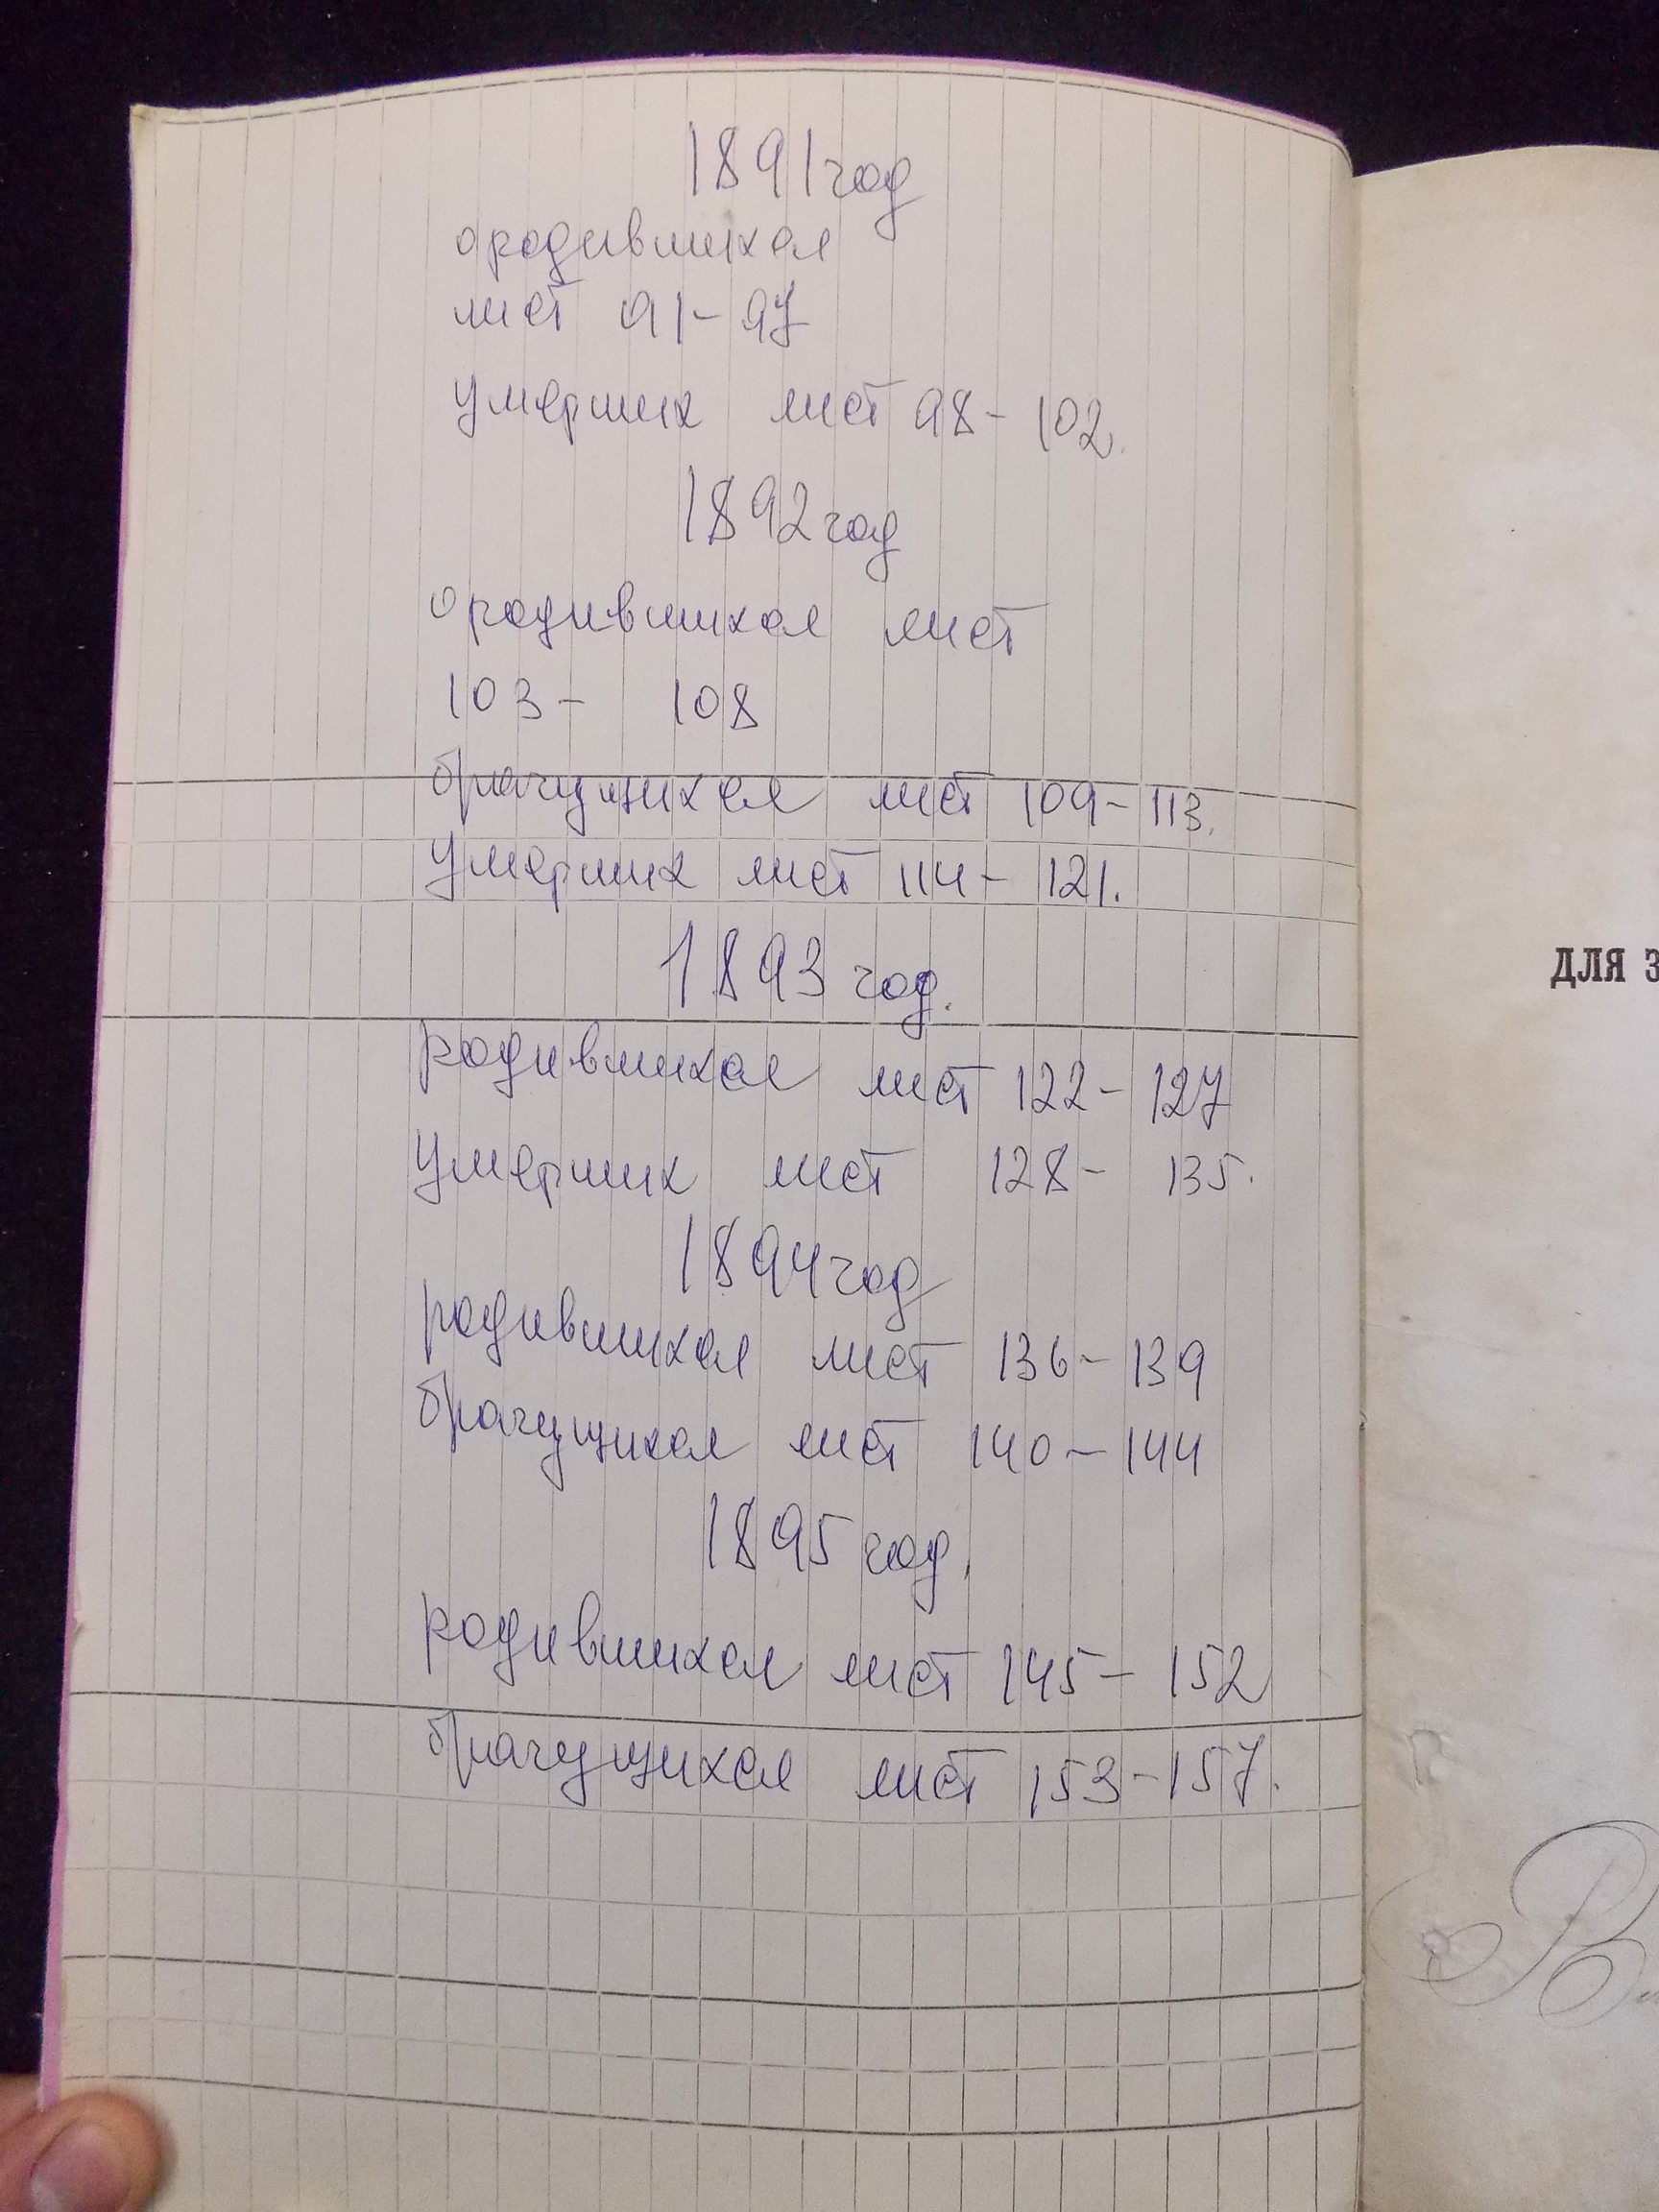 1891 год
о родившихся
лист 91-97
умерших лист 98-102.
1892 год
о родившихся лист
103- 108
брачущихся лист 109-113.
умерших лист 114- 121.
1893 год.
родившихся лист 122-127
умерших лист 128- 135.
1894 год
родившихся лист 136-139
брачущихся лист 140-144
1895 год.
родившихся лист 145- 152
брачущихся лист 153-157.
ДЛЯ З